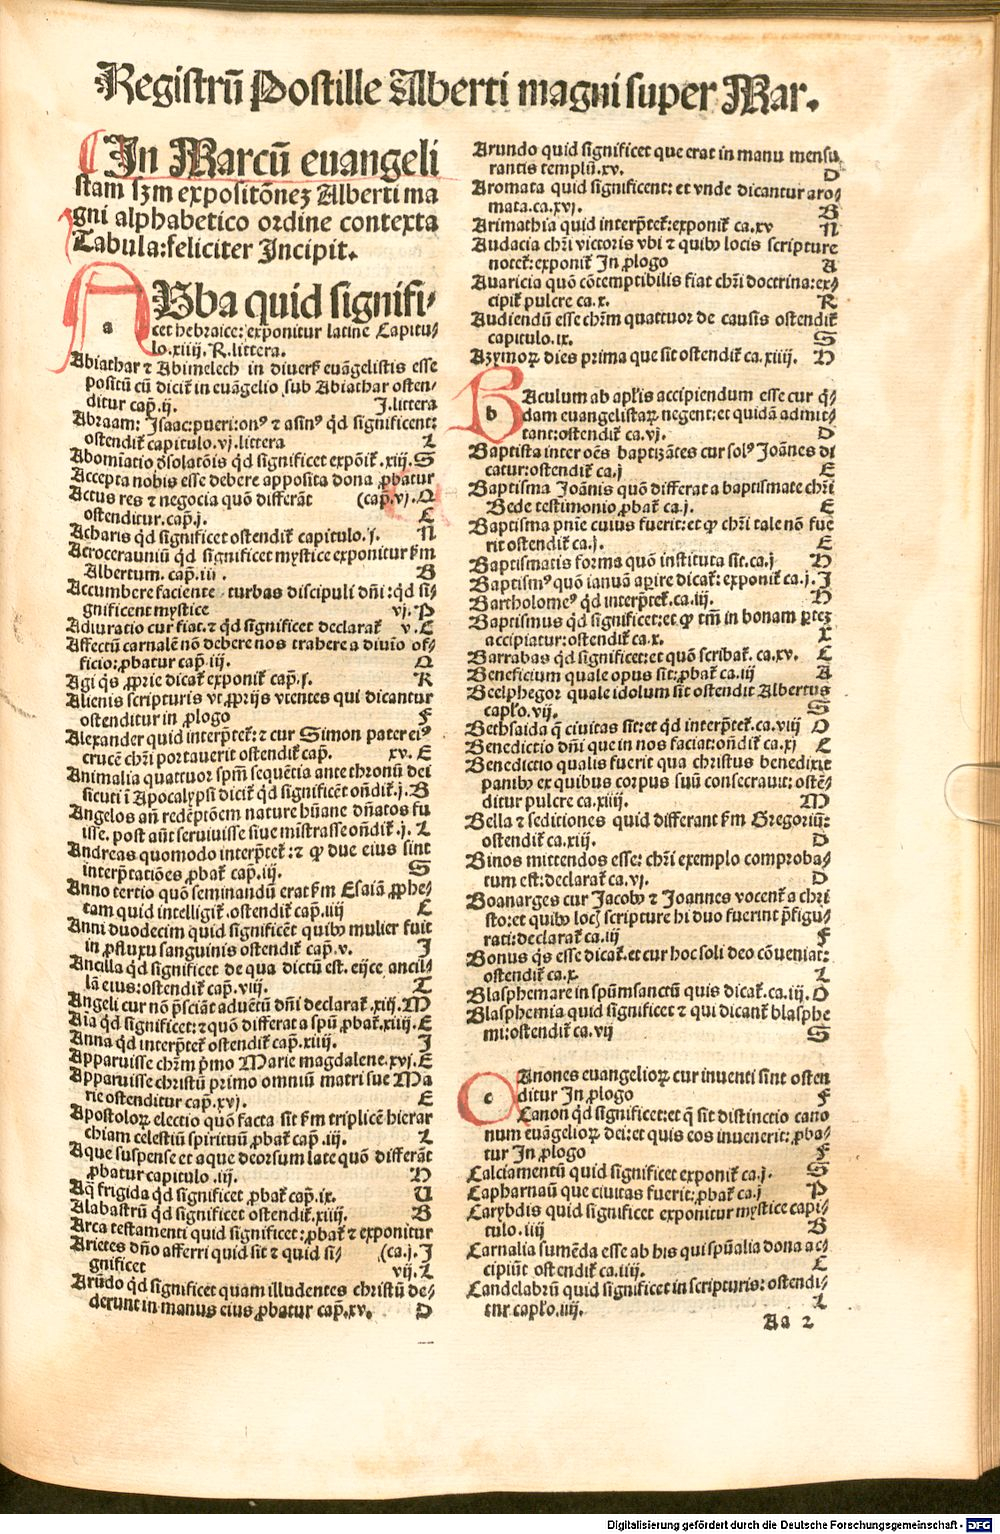 Registrū Postille Alberti magni super Mar.
In Marcū euangeli
stam sʒm expositōneʒ Alberti ma
gni alphabetico ordine contexta
Tabula: feliciter Incipit.
ABba quid signifi⸗
a
cet hebraice: exponitur latine Capitu⸗
lo.xiiij. R.littera.
Abiathar ⁊ Abimelech in diuers̄ euāgelistis esse
positū cū dicit̄ in euāgelio sub Abiathar osten⸗
ditur cap̄.ij. I.littera
Abraam: Isaac: pueri: onꝰ ⁊ asinꝰ qd̄ significent:
ostendit̄ capitulo.vj.littera L
Abomīatio ꝺsolatōis qd̄ significet expōit̄.xiij.S
Accepta nobis esse debere apposita dona ꝓbatur
Actus res ⁊ negocia quō differāt (cap̄.vj.Q
ostenditur.cap̄.j. C
Acharis qd̄ significet ostendit̄ capitulo.j. N
Acrocerauniū qd̄ significet mystice exponitur ẜm
Albertum. cap̄.iij. B
Accumbere faciente turbas discipuli dn̄i: qd̄ si⸗
gnificent mystice vj.P
Adiuratio cur fiat. ⁊ qd̄ significet declarat̄ v.C
Affectū carnalē nō debere nos trahere a diuīo of⸗
ficio: ꝓbatur cap̄.iij. Q
Agi qs̄ ꝓprie dicat̄ exponit̄ cap̄.j. R
Alienis scripturis vt ꝓprijs vtentes qui dicantur
ostenditur in ꝓlogo F
Alexander quid interp̄tet̄: ⁊ cur Simon pater eiꝰ
crucē chr̄i portauerit ostendit̄ cap̄. xv. E
Animalia quattuor spm̄ sequētia ante thronū dei
sicuti ī Apocalypsi dicit̄ qd̄ significēt on̄dit̄.j.B
Angelos an̄ redēptōem nature hūane dn̄atos fu
isse. post aūt seruiuisse siue mīstrasse on̄dit̄.j. L
Andreas quomodo interp̄tet̄: ⁊ ꝙ due eius sint
interp̄tatiōes ꝓbat̄ cap̄.iij. S
Anno tertio quō seminandū erat ẜm Esaiā ꝓphe⸗
tam quid intelligit̄.ostendit̄ cap̄.iiij C
Anni duodecim quid significēt quibꝰ mulier fuit
in ꝓfluxu sanguinis ostendit̄ cap̄.v. I
Ancilla qd̄ significet de qua dictū est. eijce ancil⸗
lā eius: ostendit̄ cap̄.viij. T
Angeli cur nō p̄sciāt aduētū dn̄i declarat̄.xiij.M
Aīa qd̄ significet: ⁊ quō differat a spū ꝓbat̄.xiiij.E
Anna qd̄ interp̄tet̄ ostendit̄ cap̄.xiiij. I
Apparuisse chr̄m p̄mo Marie magdalene.xvj.E
Apparuisse christū primo omniū matri sue Ma
rie ostenditur cap̄.xvj. E
Apostoloꝝ electio quō facta sit ẜm triplicē hierar
chiam celestiū spirituū ꝓbat̄ cap̄.iij. L
Aque suspense et aque deorsum late quō differāt
ꝓbatur capitulo.iij. H
Aq̄ frigida qd̄ significet ꝓbat̄ cap̄.ix. U
Alabastrū qd̄ significet ostendit̄.xiiij. B
Arca testamenti quid significet: ꝓbat̄ ⁊ exponitur
Arietes dn̄o afferri quid sit ⁊ quid si⸗ (ca.j.I
gnificet vij.L
Arūdo qd̄ significet quam illudentes christū de⸗
derunt in manus eius ꝓbatur cap̄.xv. D
Arundo quid significet que erat in manu mensu
rantis templū.xv. D
Aromata quid significent: et vnde dicantur aro⸗
mata.ca.xvj. B
Arimathia quid interp̄tet̄: exponit̄ ca.xv N
Audacia chr̄i victoris vbi ⁊ quibꝰ locis scripture
notet̄: exponit̄ In ꝓlogo A
Auaricia quō cōtemptibilis fiat chr̄i doctrina: ex⸗
cipit̄ pulcre ca.x. R
Audiendū esse chr̄m quattuor de causis ostendit̄
capitulo.ix. S
Azymoꝝ dies prima que sit ostendit̄ ca.xiiij. H
BAculum ab apl̄is accipiendum esse cur q̄⸗
b
dam euangelistaꝝ negent: et quidā admit⸗
tant: ostendit̄ ca.vj. D
Baptista inter oēs baptizātes cur solꝰ Joānes di
catur: ostendit̄ ca.j E
Baptisma Joānis quō differat a baptismate chr̄i
Bede testimonio ꝓbat̄ ca.j. E
Baptisma pn̄ie cuius fuerit: et ꝙ chr̄i tale nō fue
rit ostendit̄ ca.j. E
Baptismatis forma quō instituta sit.ca.j H
Baptismꝰ quō ianuā aꝑire dicat̄: exponit̄ ca.j.I
Bartholomeꝰ qd̄ interp̄tet̄.ca.iij. H
Baptismus qd̄ significet: et ꝙ tm̄ in bonam ꝑteʒ
accipiatur: ostendit̄ ca.x. X
Barrabas qd̄ significet: et quō scribat̄. ca.xv. C
Beneficium quale opus sit: ꝓbat̄ ca.iij A
Beelphegor quale idolum sit ostendit Albertus
capl̄o.vij. S
Bethsaida q̄ ciuitas sit: et qd̄ interp̄tet̄.ca.viij O
Benedictio dn̄i que in nos faciat: on̄dit̄ ca.xj C
Benedictio qualis fuerit qua christus benedixit
panibꝰ ex quibus corpus suū consecrauit: ostē⸗
ditur pulcre ca.xiiij. M
Bella ⁊ seditiones quid differant ẜm Gregoriū:
ostendit̄ ca.xiij. D
Binos mittendos esse: chr̄i exemplo comproba⸗
tum est: declarat̄ ca.vj. D
Boanarges cur Jacobꝰ ⁊ Joannes vocent̄ a chri
sto: et quibꝰ locꝭ scripture hi duo fuerint p̄figu⸗
rati: declarat̄ ca.iij F
Bonus qs̄ esse dicat̄.et cur hoc soli deo cōueniat:
ostendit̄ ca.x. L
Blasphemare in spūmsanctū quis dicat̄.ca.iij. O
Blasphemia quid significet ⁊ qui dicant̄ blasphe
mi: ostendit̄ ca.vij S
CAnones euangelioꝝ cur inuenti sint osten
c
ditur In ꝓlogo F
Canon qd̄ significet: et q̄ sit distinctio cano
num euāgelioꝝ dei: et quis eos inuenerit: ꝓba⸗
tur In ꝓlogo F
Calciamentū quid significet exponit̄ ca.j. S
Capharnaū que ciuitas fuerit: ꝓbat̄ ca.j P
Carybdis quid significet exponitur mystice capi⸗
tulo.iiij B
Carnalia sumēda esse ab his qui spūalia dona ac⸗
cipiūt ostendit̄ ca.iiij. C
Candelabrū quid significet in scripturis: ostendi⸗
tur capl̄o.iiij. L
Aa 2
Digitalisierung gefördert durch die Deutsche Forschungsgemeinschaft - DFG